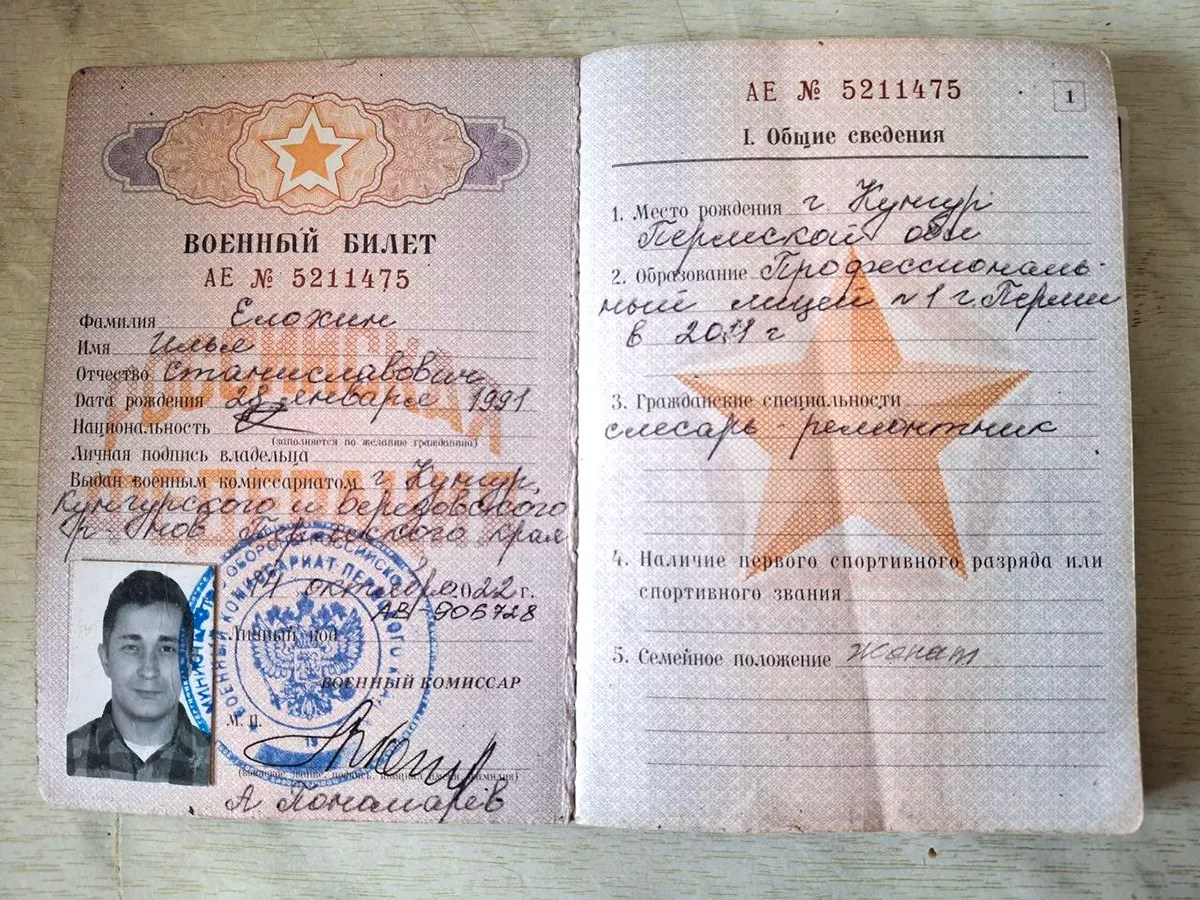 ВОЕННЫЙ БИЛЕТ
АЕ № 5211475
Фамилия Елохин
Имя Илья
Отчество Станиславович
Дата рождения 28 января 1991
Национальность
(заполняется по желанию гражданина)
Личная подпись владельца
Выдан военным комиссариатом г. Кунгур,
Кунгурского и Березовского
р-нов Пермского края
октября 2022 г.
АВ-906728
Личный код
ВОЕННЫЙ КОМИССАР
М. П.
(воинское звание, подпись, инициал имени, фамилия)
А Пономарёв
АЕ № 5211475
1
I. Общие сведения
1. Место рождения г. Кунгур
Пермской обл
2. Образование Профессиональ-
ный лицей №1 г. Перми
в 2011 г
3. Гражданские специальности
слесарь-ремонтник
4. Наличие первого спортивного разряда или
спортивного звания
5. Семейное положение женат